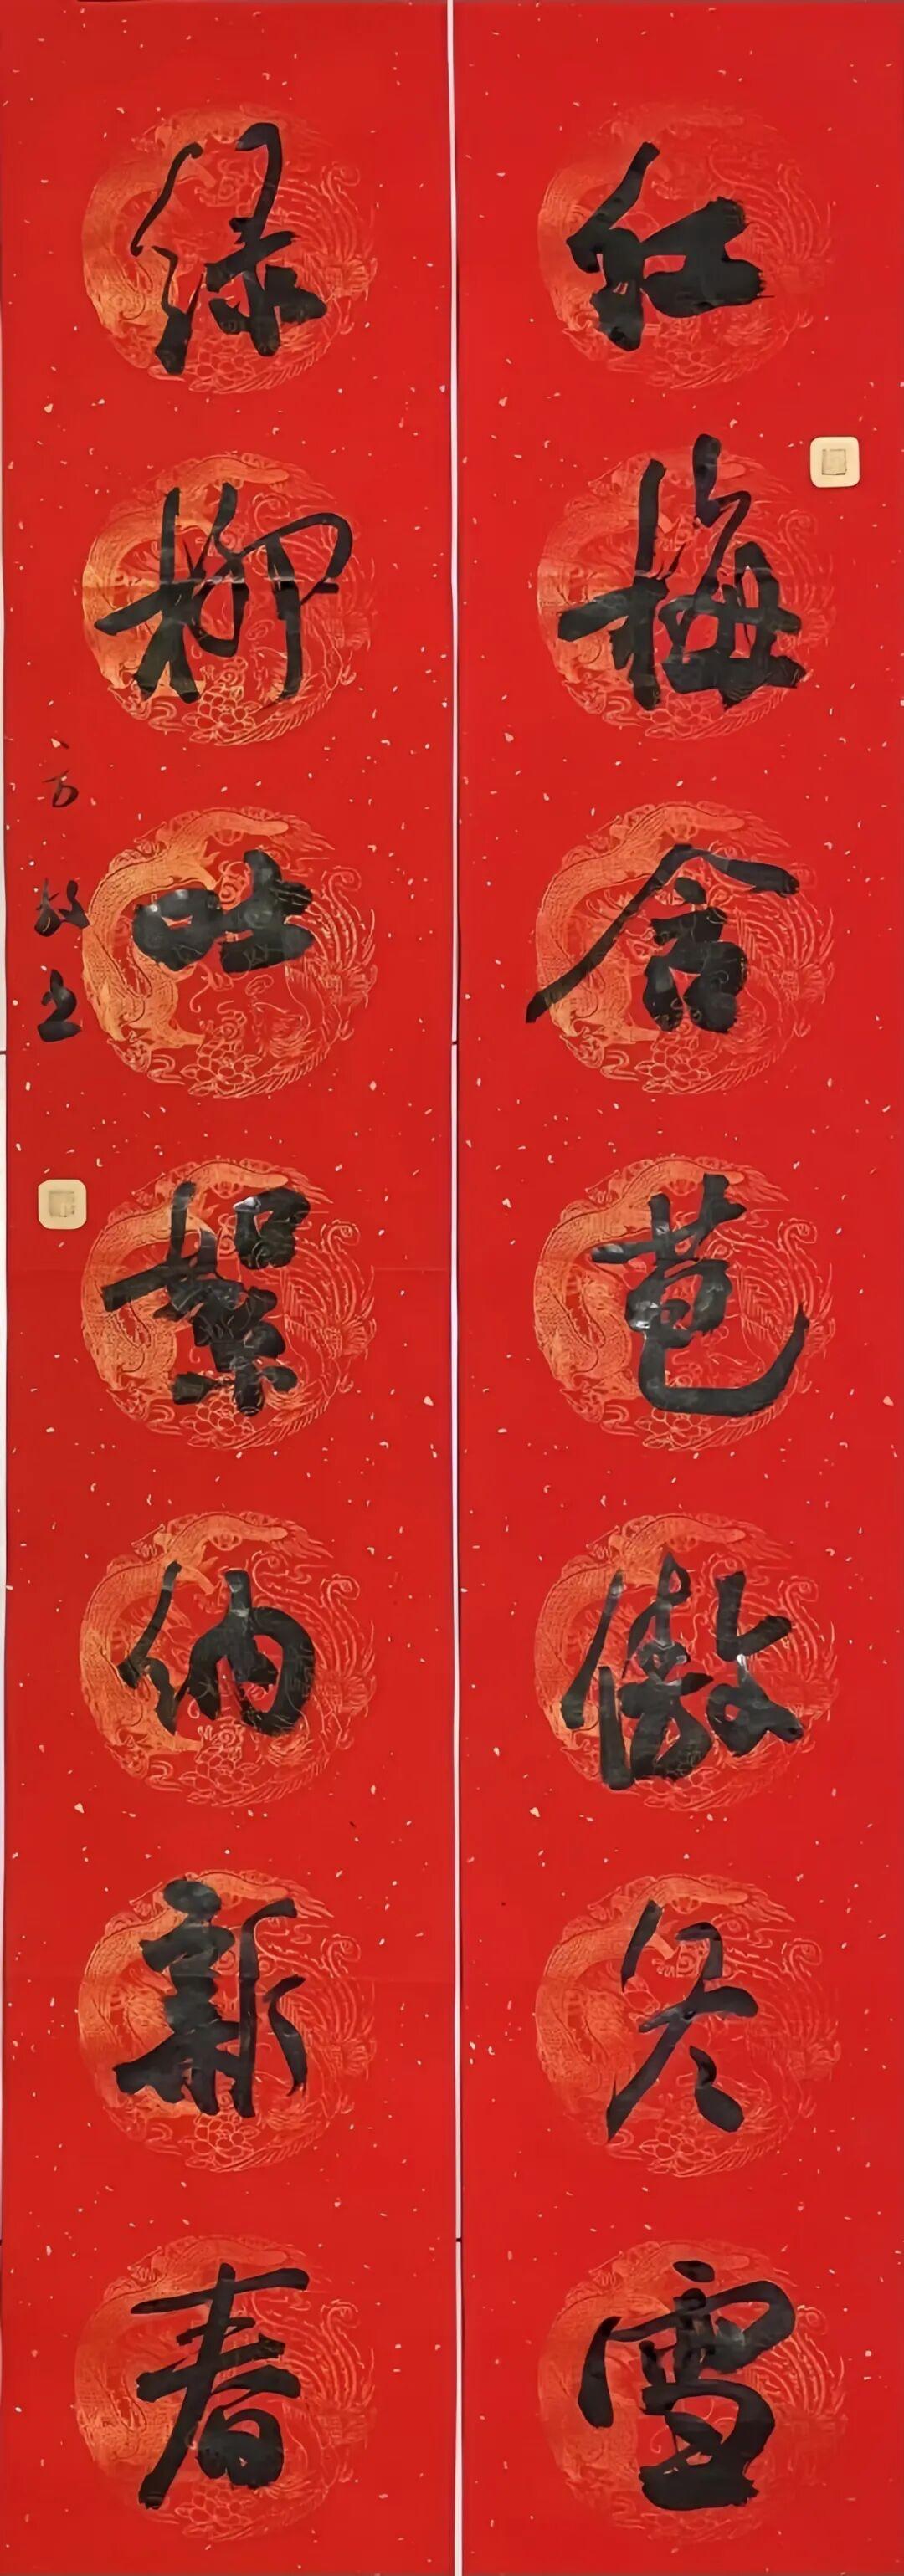 红梅含苞傲冬雪
绿柳吐絮纳新春